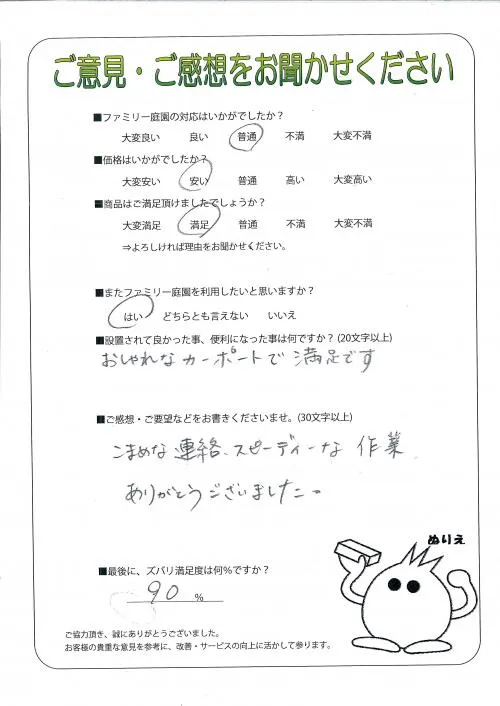 ご意見・ご感想をお聞かせください
■ファミリー庭園の対応はいかがでしたか？
大変良い 良い 普通 不満 大変不満
■価格はいかがでしたか？
大変安い 安い 普通 高い 大変高い
■商品はご満足頂けましたでしょうか？
大変満足 満足 普通 不満 大変不満
⇒よろしければ理由をお聞かせください。
■またファミリー庭園を利用したいと思いますか？
はい どちらとも言えない いいえ
■設置されて良かった事、便利になった事は何ですか？(20文字以上)
おしゃれなカーポートで満足です
■ご感想・ご要望などをお書きくださいませ。(30文字以上)
こまめな連絡、スピーディーな作業
ありがとうございました。
ぬりえ
■最後に、ズバリ満足度は何％ですか？
90 %
ご協力頂き、誠にありがとうございました。
お客様の貴重な意見を参考に、改善・サービスの向上に活かして参ります。